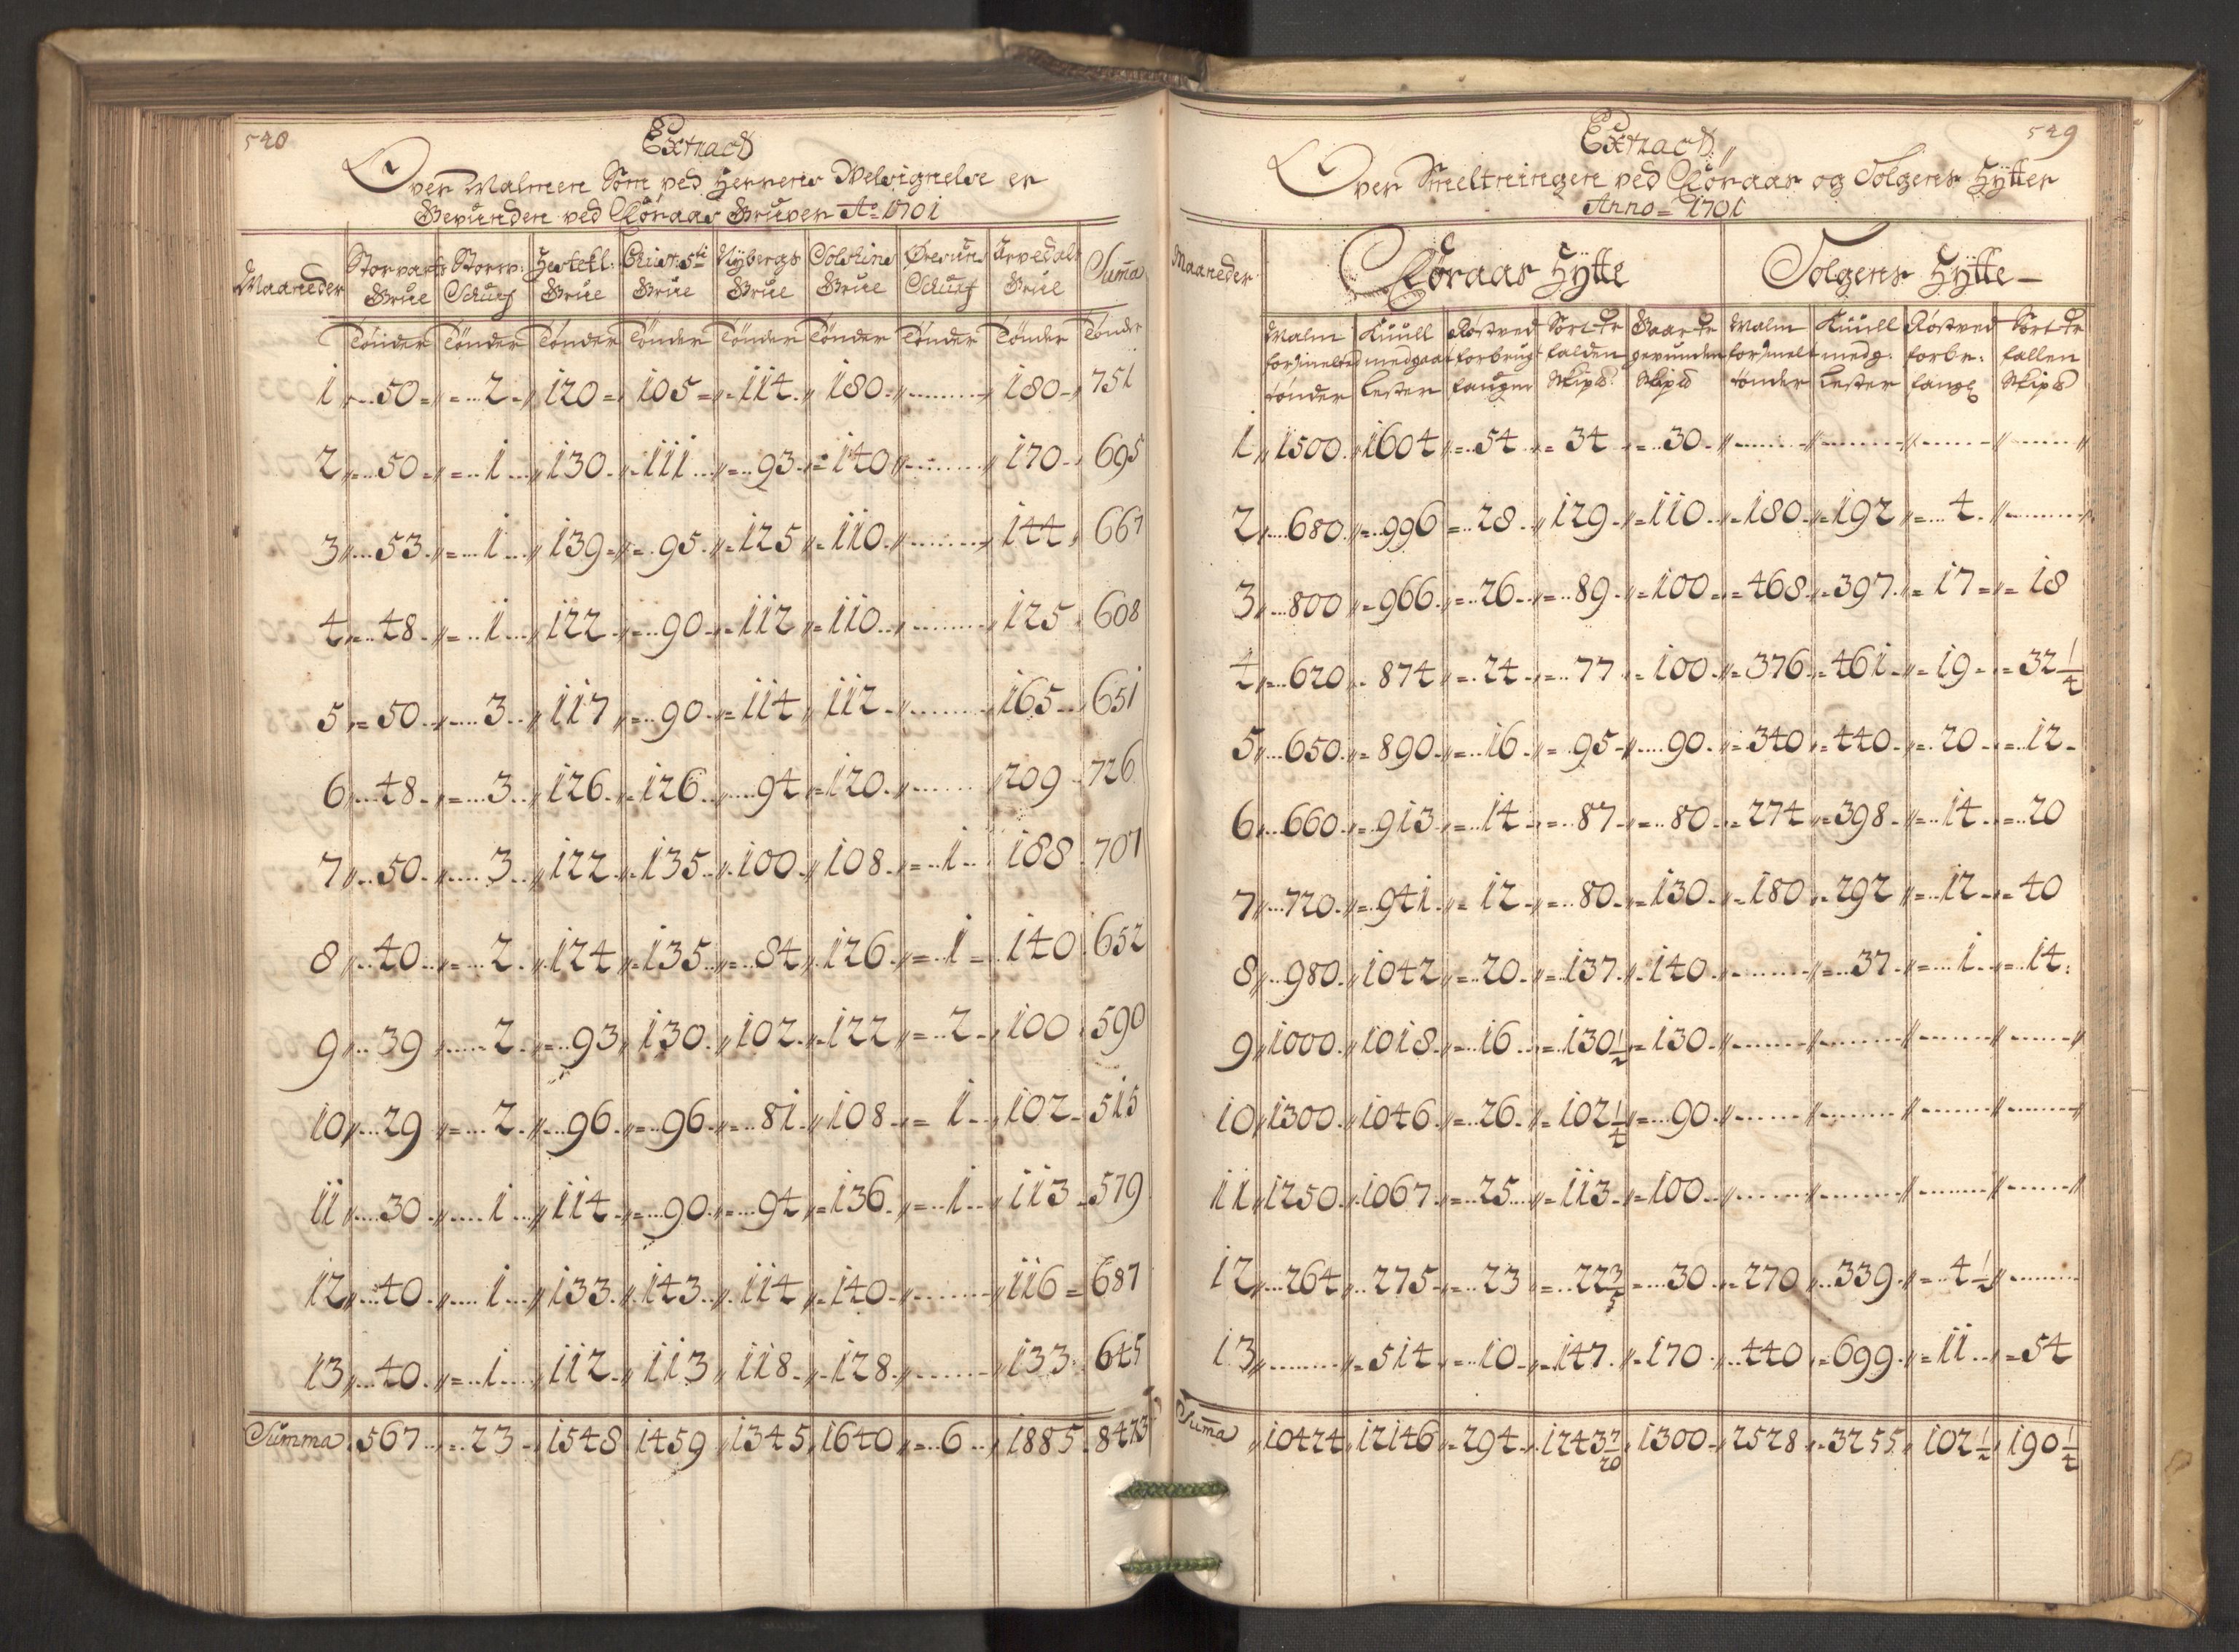 548
Extract
Over Malmen Som ved Herrens Velsignelse er
Bevunden ved Röraas Gruver Ao 1701
Maaneder Storvarts Grue Storw: Schurf Hestekl: Grue Christ: 5ti Grue Nÿbergs Grue Solskins Grue Øresuns Schurf Arvedals Grue Sum̄a
Tönder Tönder Tönder Tönder Tönder Tönder Tönder Tönder Tönder
1 50 2 120 105 114 180 180 751
2 50 1 130 111 93 140 170 695
3 53 1 139 95 125 110 144 667
4 48 1 122 90 112 110 125 608
5 50 3 117 90 114 112 165 651
6 48 3 126 126 94 120 209 726
7 50 3 122 135 100 108 1 188 707
8 40 2 124 135 84 126 1 140 652
9 39 2 93 130 102 122 2 100 590
10 29 2 96 96 81 108 1 102 515
11 30 1 114 90 94 136 1 113 579
12 40 1 133 143 114 140 116 687
13 40 1 112 113 118 128 133 645
Summa 567 23 1548 1459 1345 1640 6 1885 8473
549
Extract
Over Smeltningen ved Röraas og Tolgens Hÿtter
Anno 1701
Maaneder Röraas Hÿtte Tolgens Hÿtte
Malm Kuull Röstved Sort Gaar Malm Kuull Röstved Sort
forsmelted medgaaet forbrugt falden gevunden forsmelt medg: forbr: fallen
tönder Lester faugner Skip℔ Skip℔ tönder Lester faugn Skip℔
1 1500 1604 54 34 30
2 680 996 28 129 110 180 192 4
3 800 966 26 89 100 468 397 17 18
4 620 874 24 77 100 376 461 19 32 1/4
5 650 890 16 95 90 340 440 20 12
6 660 913 14 87 80 274 398 14 20
7 720 941 12 80 130 180 292 12 40
8 980 1042 20 137 140 37 1 14
9 1000 1018 16 130 1/2 130
10 1300 1046 26 102 1/4 90
11 1250 1067 25 113 100
12 264 275 23 22 3/5 30 270 339 4 1/2
13 514 10 147 170 440 699 11 54
Sum̄a 10424 12146 294 1243 7/20 1300 2528 3255 102 1/2 190 1/4